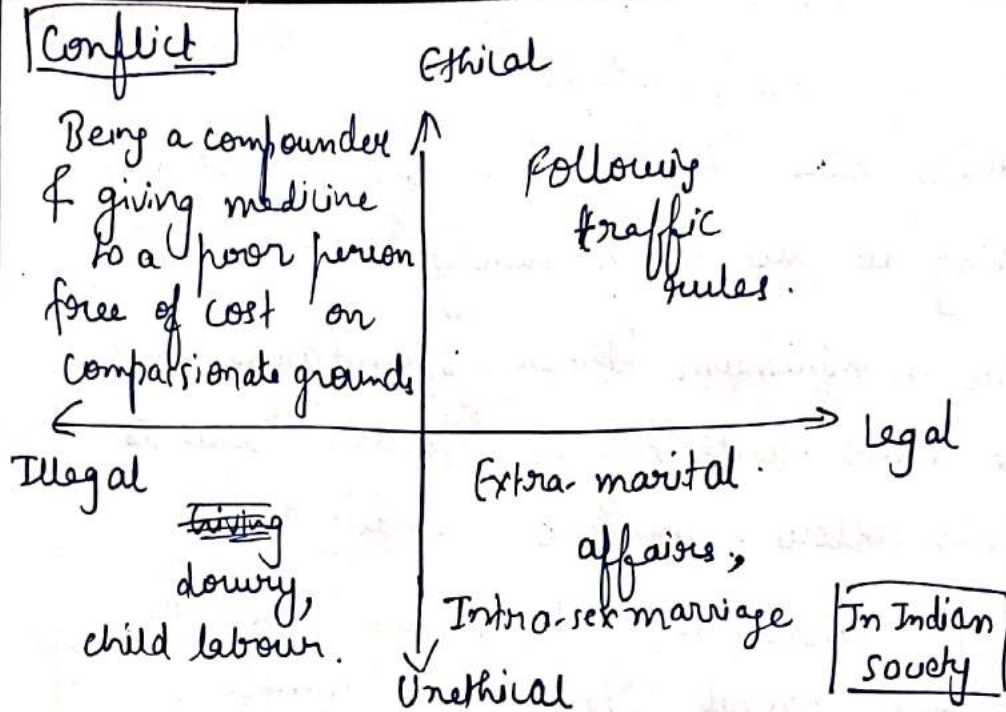 Conflict
Ethical
Being a compounder
& giving medicine
to a poor person
free of cost on
compassionate grounds
Following
traffic
rules.
Illegal
Legal
Giving
dowry,
child labour.
Extra-marital
affairs,
Intra-sex marriage
In Indian
society
Unethical